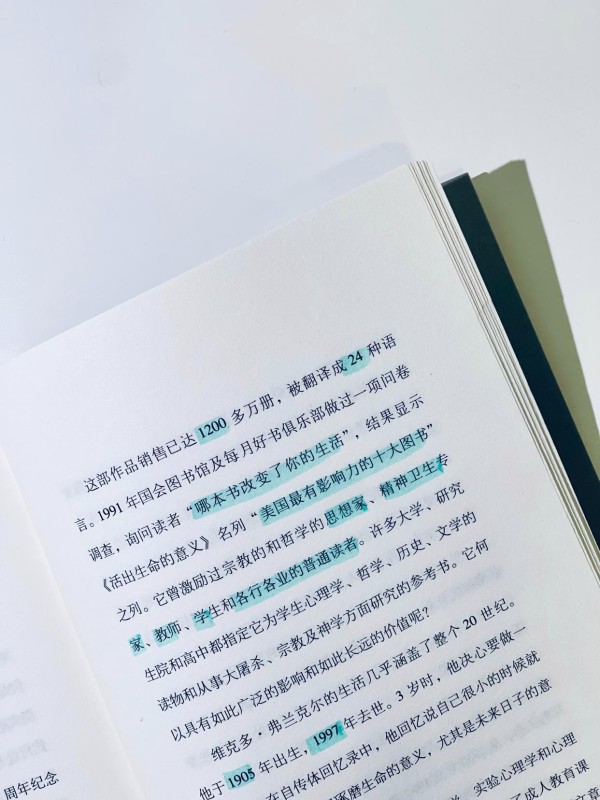 这部作品销售已达 1200 多万册，被翻译成 24 种语
言。1991 年国会图书馆及每月好书俱乐部做过一项问卷
调查，询问读者“哪本书改变了你的生活”，结果显示
《活出生命的意义》名列“美国最有影响力的十大图书”
之列。它曾激励过宗教的和哲学的思想家、精神卫生专
家、教师、学生和各行各业的普通读者。许多大学、研究
生院和高中都指定它为学生心理学、哲学、历史、文学的
读物和从事大屠杀、宗教及神学方面研究的参考书。它何
以具有如此广泛的影响和如此长远的价值呢？
维克多·弗兰克尔的生活几乎涵盖了整个 20 世纪。
他于 1905 年出生，1997 年去世。3 岁时，他决心要做一
在自传体回忆录中，他回忆说自己很小的时候就
琢磨生命的意义，尤其是未来日子的意
实验心理学和心理
了成人教育课
文章
周年纪念